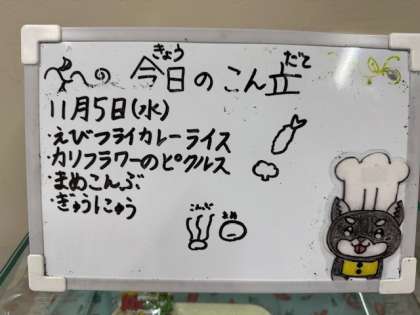 今日のこん立
きょう だて
11月5日(水)
・えびフライカレーライス
・カリフラワーのピクルス
・まめこんぶ
・ぎゅうにゅう
こんぶ まめ